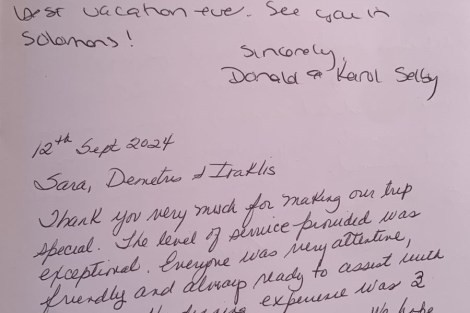 best vacation ever. See you in
Solomons!
Sincerely,
Donald & Karol Selby
12th Sept 2024
Sara, Demetris & Iraklis
Thank you very much for making our trip
special. The level of service provided was
exceptional. Everyone was very attentive,
friendly and always ready to assist with
experience was 2
We hope